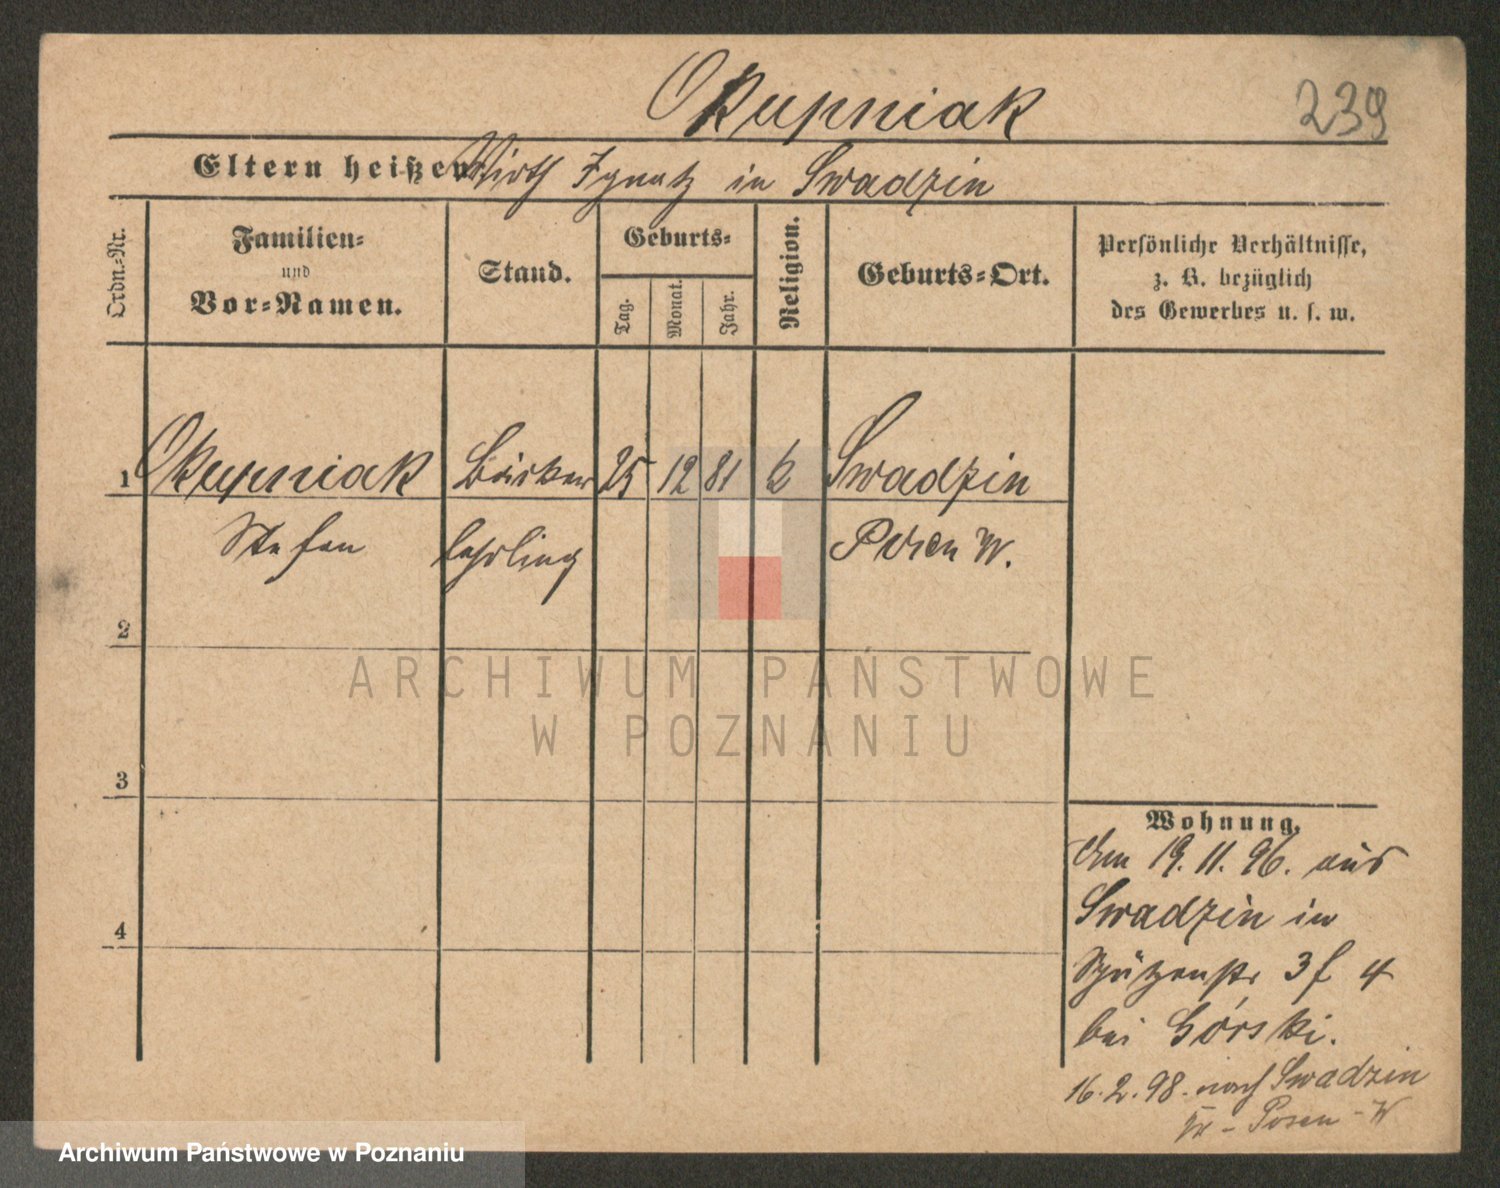 Okupniak
239
Eltern heißen Wirth Ignatz in Swadzin
Ordn.-Nr.
Familien-
und
Vor-Namen.
Stand.
Geburts-
Tag.
Monat.
Jahr.
Religion.
Geburts-Ort.
Persönliche Verhältnisse,
z. B. bezüglich
des Gewerbes u. s. w.
1 Okupniak Bäcker 25 12 81 k Swadzin
Stefan lehrling Posen W.
2
3
4
Wohnung.
Am 19. 11. 96. aus
Swadzin in
Schützenstr 3 f 4
bei Górski.
16. 2. 98. nach Swadzin
Kr - Posen - W
ARCHIWUM PAŃSTWOWE
W POZNANIU
Archiwum Państwowe w Poznaniu